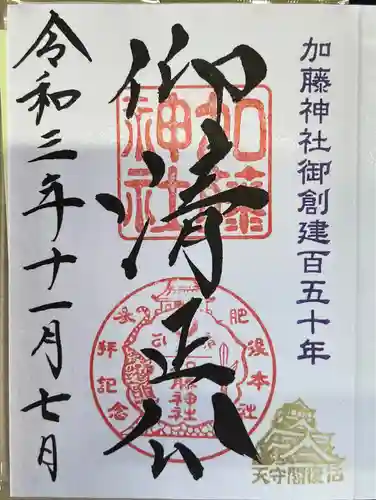 加藤神社御創建百五十年
仰清正公
加藤神社
肥後本社
参拝記念
加藤神社
天守閣復活
令和三年十一月七日